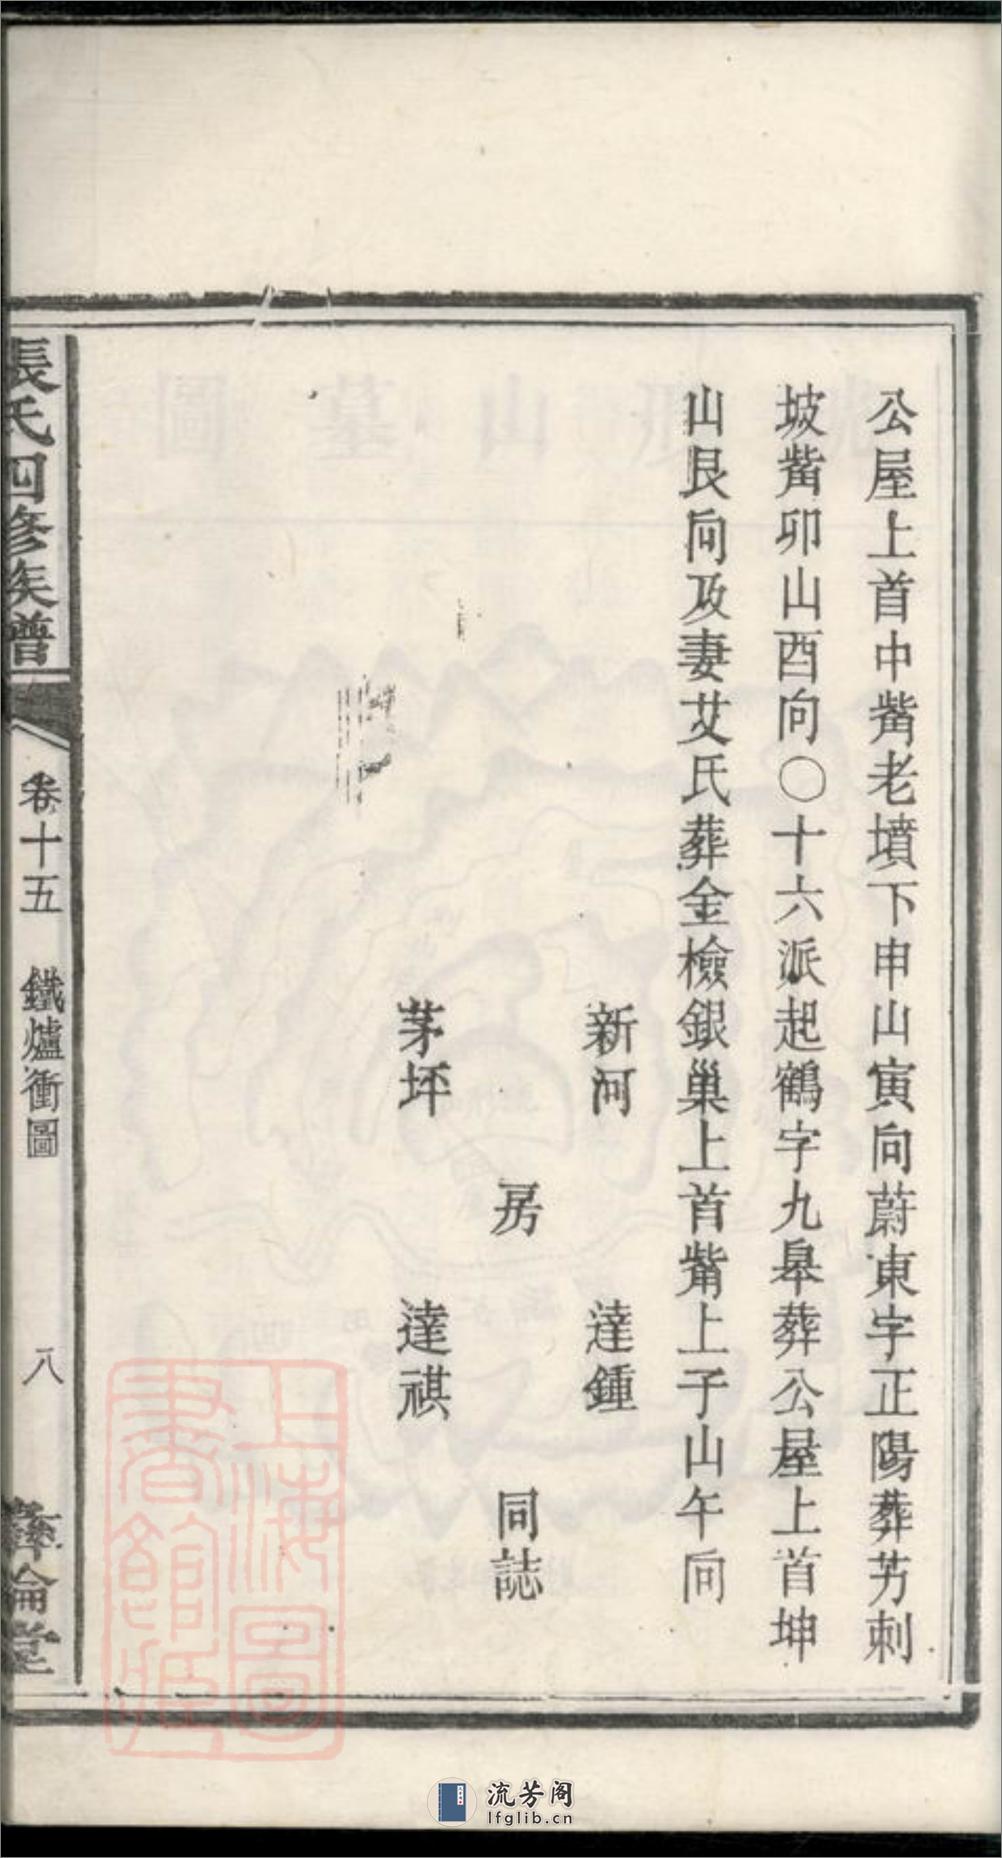 公屋上首中觜老墳下申山寅向蔚東字正陽葬芳刺
坡觜卯山酉向〇十六派起鶴字九皋葬公屋上首坤
山艮向及妻艾氏葬金檢銀巢上首觜上子山午向
新河　達鍾
房　同誌
茅坪　達祺
張氏四修族譜
卷十五　鐵爐衝圖
八
彝倫堂
上海圖書館藏
流芳阁
lfglib.cn